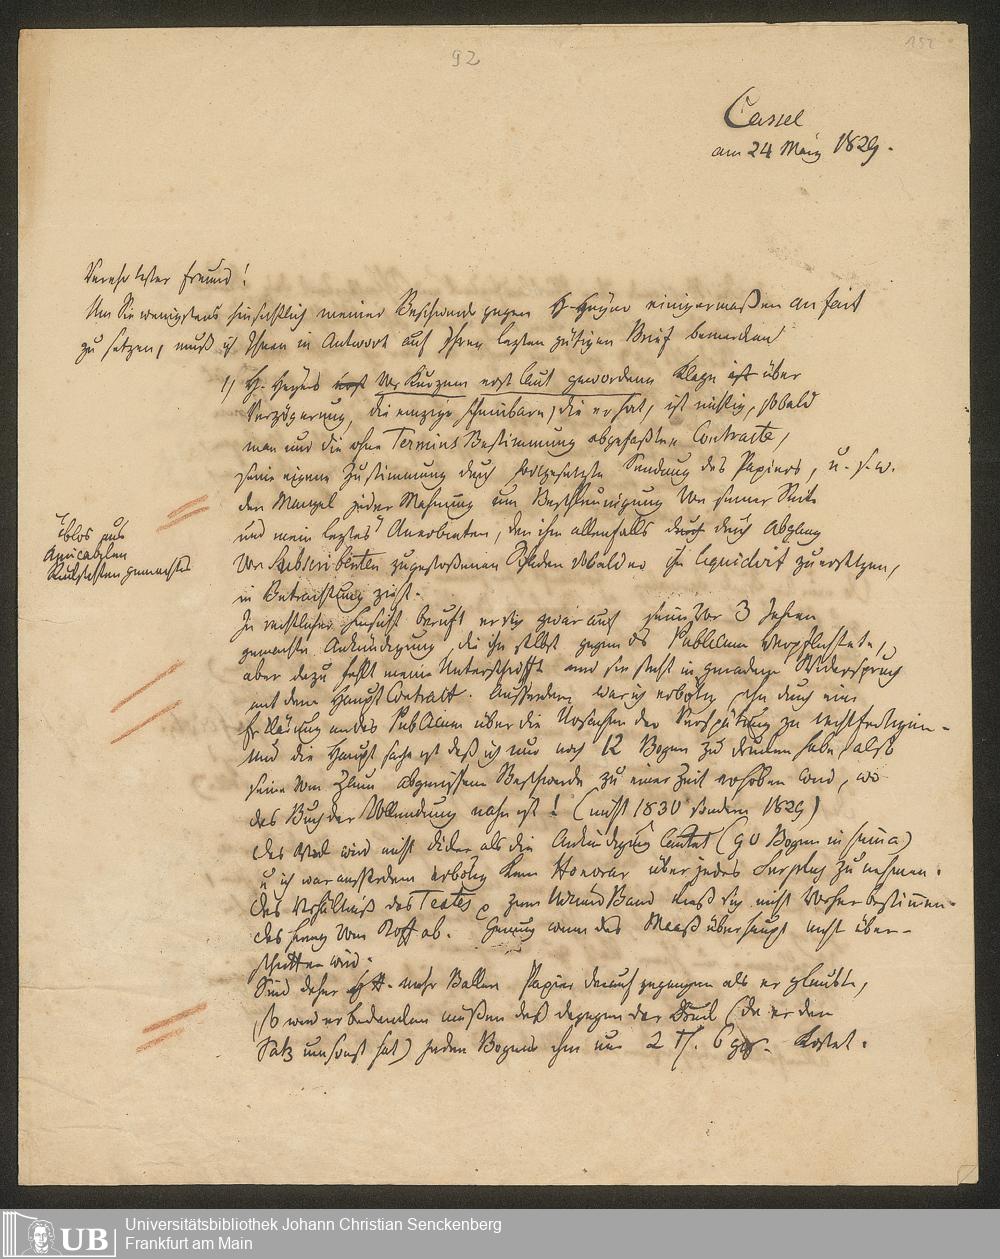 92
152
Cassel
am 24 März 1829.
Verehrtester Freund!
Um Sie wenigstens hinsichtlich meiner Beschwerde gegen H. Heyer einigermaßen au fait
zu setzen, muß ich Ihnen in Antwort auf Ihren lezten gütigen Brief bemerken
1) H. Heyers erst vor Kurzem erst laut gewordene Klage ist über
Verzögerung, die einzige scheinbare, die er hat, ist nichtig, sobald
man nur die ohne Termins Bestimmung abgefaßten Contracte,
seine eigene Zustimmung durch fortgesetzte Sendung des Papiers, u. s. w.
den Mangel jeder Mahnung um Beschleunigung von seiner Seite
und mein leztes Anerbieten, den ihm allenfalls durch durch Abgang
von Subscribenten zugestoßenen Schaden sobald er ihn liquidirt zu ersetzen,
in Betrachtung zieht.
blos aus
Amicabeln
Rücksichten gemachtes
In rechtlicher Hinsicht beruft er sich zwar auf seine vor 3 Jahren
gemachte Ankündigung, die ihn selbst gegen das Publicum verpflichtete,
aber dazu fehlt meine Unterschrifft und sie steht in geradem Widerspruch
mit dem Haupt Contract. Ausserdem war ich erbötig ihn durch eine
Erklärung an das Publicum über die Ursachen der Verspätung zu rechtfertigen.
Und die Hauptsache ist daß ich nur noch 12 Bogen zu drucken habe, also
seine vom Zaun abgerissene Beschwerde zu einer Zeit erhoben wird, wo
das Buch der Vollendung nahe ist! (nicht 1830 sondern 1829)
Das Werk wird nicht dicker als die Ankündigung lautet (90 Bogen in summa)
u ich war ausserdem erbötig kein Honorar über jedes Surplus zu nehmen.
Das Verhältniß des Textes zum Urkund Band ließ sich nicht vorher bestimmen.
das hing vom Stoff ab. Genug wenn das Maaß überhaupt nicht über-
schritten wird.
Sind daher H. mehr Ballen Papier darauf gegangen als er glaubte,
so wird er bedenken müßen daß dagegen der Druck (da er den
Satz umsonst hat) jeden Bogens ihm nur 2 f. 6 kostet.
Universitätsbibliothek Johann Christian Senckenberg
Frankfurt am Main
UB